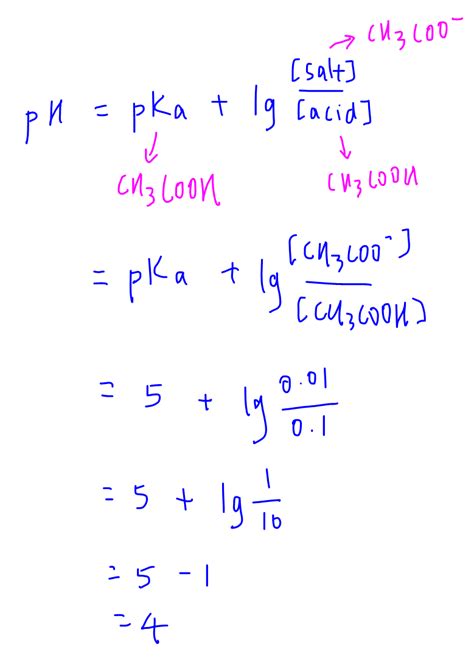 CH3COO⁻
pH = pKa + lg [salt]/[acid]
CH3COOH
CH3COOH
= pKa + lg [CH3COO⁻]/[CH3COOH]
= 5 + lg 0.01/0.1
= 5 + lg 1/10
= 5 - 1
= 4